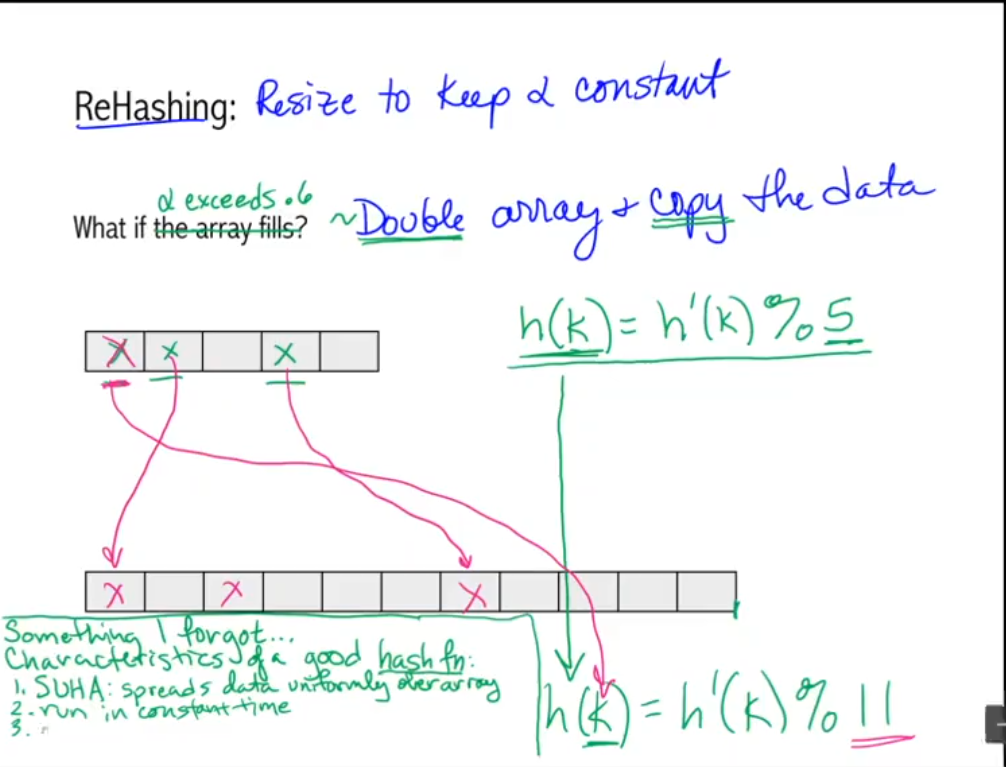 ReHashing: Resize to keep α constant
α exceeds .6
What if the array fills? ~Double array + copy the data
h(k) = h'(k) % 5
X X X
X X X
Something I forgot...
Characteristics of a good hash fn:
1. SUHA: spreads data uniformly over array
2. run in constant time
3.
h(k) = h'(k) % 11